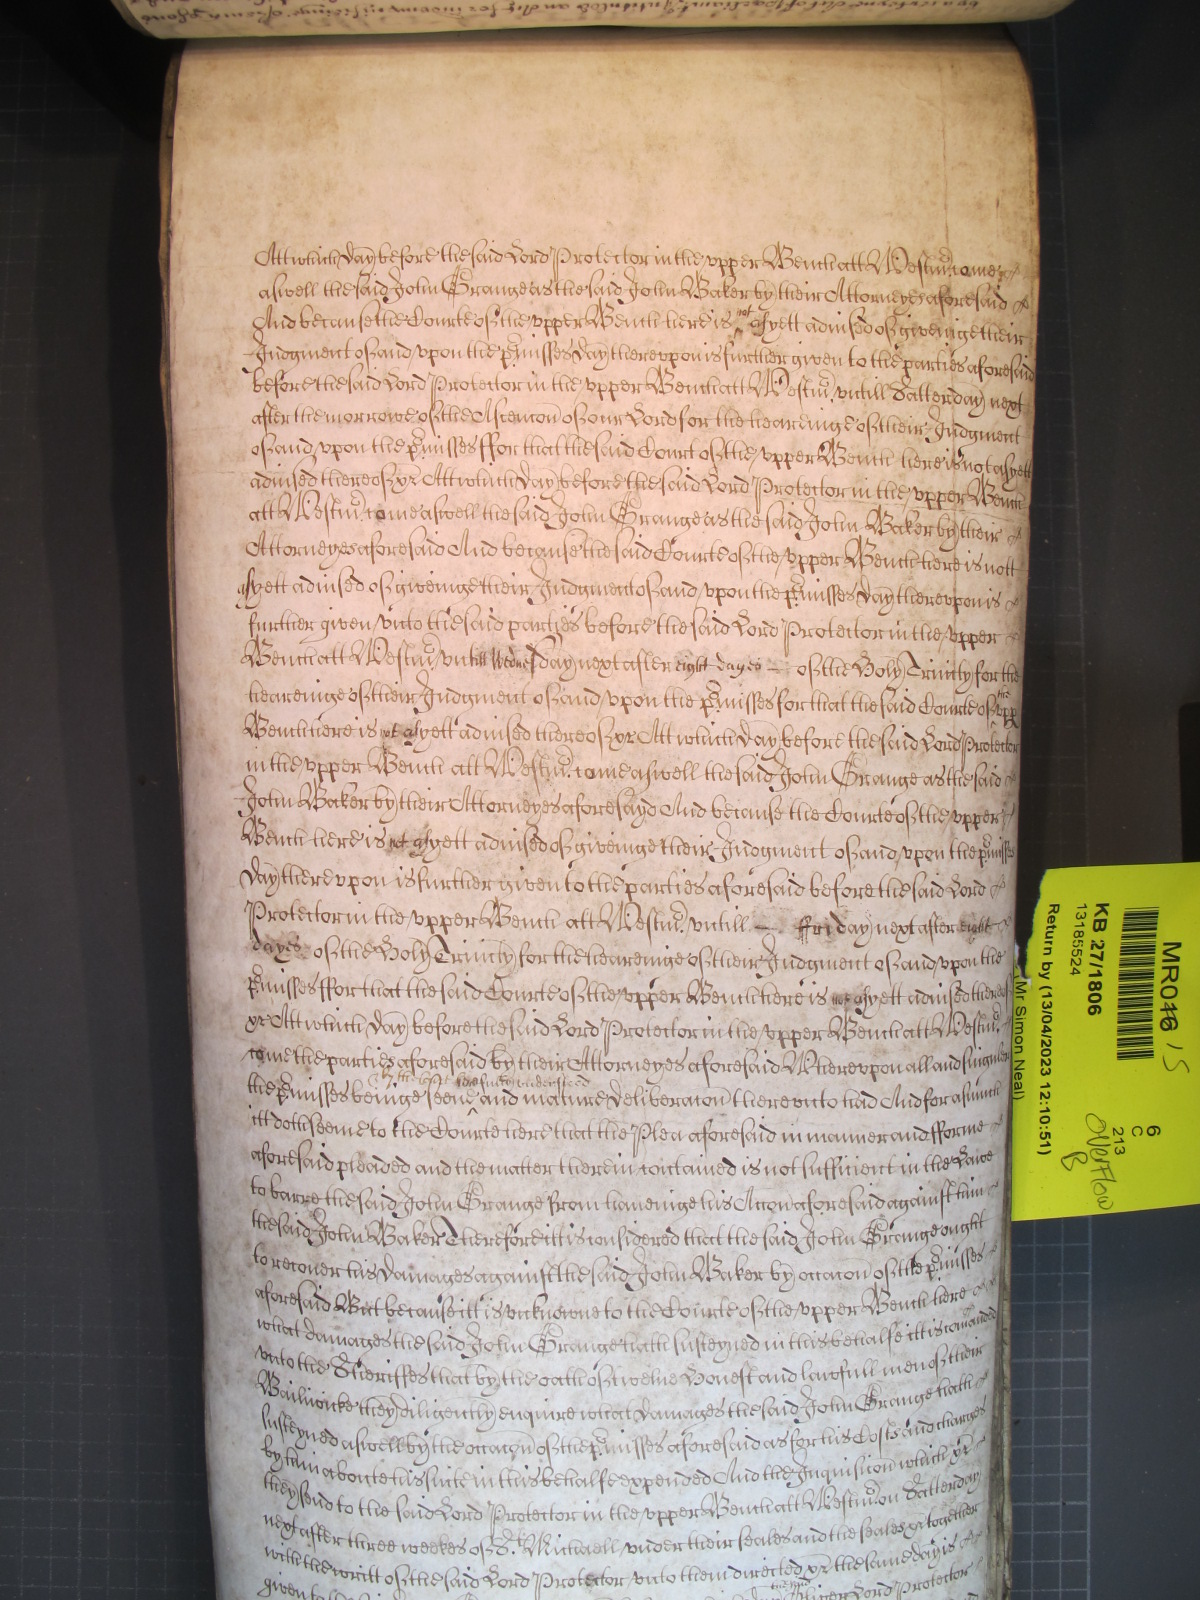 Att which day before the said Lord Protector in the upper Bench att Westmr. come
aswell the said John Grange as the said John Baker by their Attorneyes aforesaid
And because the Courte of the upper Bench here is not asyett advised of giveinge their
Judgment of and upon the pmisses day thereupon is further given to the parties aforesaid
before the said Lord Protector in the upper Bench att Westmr. untill Satterday next
after the morrowe of the Ascencon of our Lord for the heareinge of their Judgment
of and upon the pmisses ffor that the said Court of the upper Bench here is not asyett
advised thereof &c Att which day before the said Lord Protector in the upper Bench
att Westmr. come aswell the said John Grange as the said John Baker by their
Attorneyes aforesaid And because the said Courte of the upper Bench here is nott
asyett advised of giveinge their Judgment of and upon the pmisses day thereupon is
further given unto the said parties before the said Lord Protector in the upper
Bench att Westmr. untill Wednesday next after eight dayes of the Holy Trinity for the
heareinge of their Judgment of and upon the pmisses for that the said Courte of the upp
Bench here is not asyett advised thereof &c Att which day before the said Lord Protector
in the upper Bench att Westmr. come aswell the said John Grange as the said
John Baker by their Attorneyes aforesayd And because the Courte of the upper
Bench here is not asyett advised of giveinge their Judgment of and upon the pmisses
day thereupon is further given to the parties aforesaid before the said Lord
Protector in the upper Bench att Westmr. untill ffriday next after eight
dayes of the Holy Trinity for the heareinge of their Judgment of and upon the
pmisses ffor that the said Courte of the upper Bench here is not asyett advised thereof
&c Att which day before the said Lord Protector in the upper Bench att Westmr.
come the parties aforesaid by their Attorneyes aforesaid Whereupon all and singuler
the pmisses beinge seene and by the Court here understood and mature deliberacon thereunto had And for asmuch
itt doth seeme to the Courte here that the Plea aforesaid in manner and fforme
aforesaid pleaded and the matter therein contained is not sufficient in the Lawe
to barre the said John Grange from haveinge his Accon aforesaid against him
the said John Baker Therefore itt is considered that the said John Grange ought
to recover his damages against the said John Baker by occacon of the pmisses
aforesaid Butt because itt is unknowne to the Courte of the upper Bench here
what damages the said John Grange hath susteyned in this behalfe itt is comanded
unto the Sheriffes that by the oath of twelve honest and lawfull men of their
Bailiwicke they diligently enquire what damages the said John Grange hath
susteyned aswell by the occacon of the pmisses aforesaid as for his Costs and charges
by him aboute his suite in this behalfe expended And the Inquisicon which &c
they send to the said Lord Protector in the upper Bench att Westmr. on Satterday
next after three weekes of St. Michaell under their seales and the seales &c together
with the writt of the said Lord Protector unto them directed &c the same day is
given to
Lord Protector
MR046 15
KB 27/1806
13185524
Return by (13/04/2023 12:10:51)
Mr Simon Neal)
6
C
213
Overflow
B